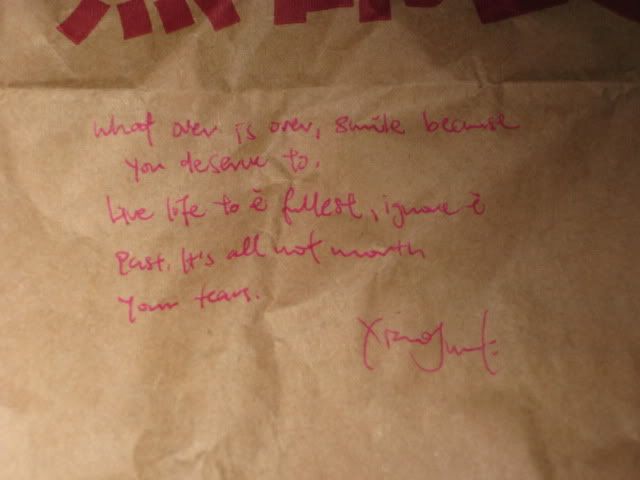 what over is over, smile because
you deserve to.
Live life to ē fullest, ignore ē
past. It's all not worth
your tears.